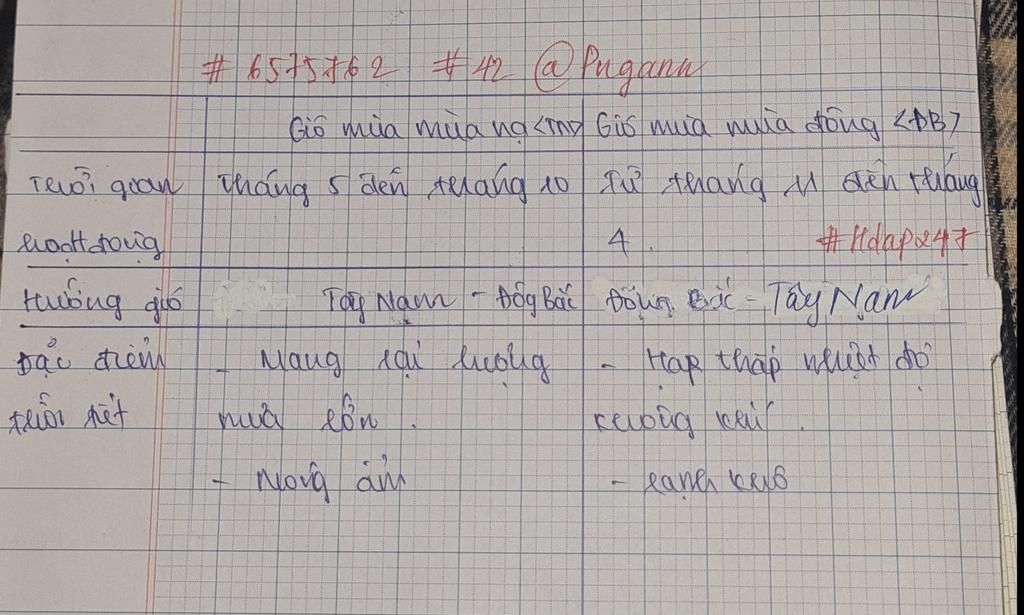 # 6575762 #42 @Pngann
Gió mùa mùa hạ <TN> Gió mùa mùa đông <ĐB>
Thời gian tháng 5 đến tháng 10 Từ tháng 11 đến tháng
hoạt động 4. #Hdap247
Hướng gió Tây Nam - Đôg Bắc Đông Bắc - Tây Nam
Đặc điểm - Mang lại lượng - Hạp thấp nhiệt độ
thời tiết mưa lớn. không khí.
- Nóng ẩm - lạnh khô